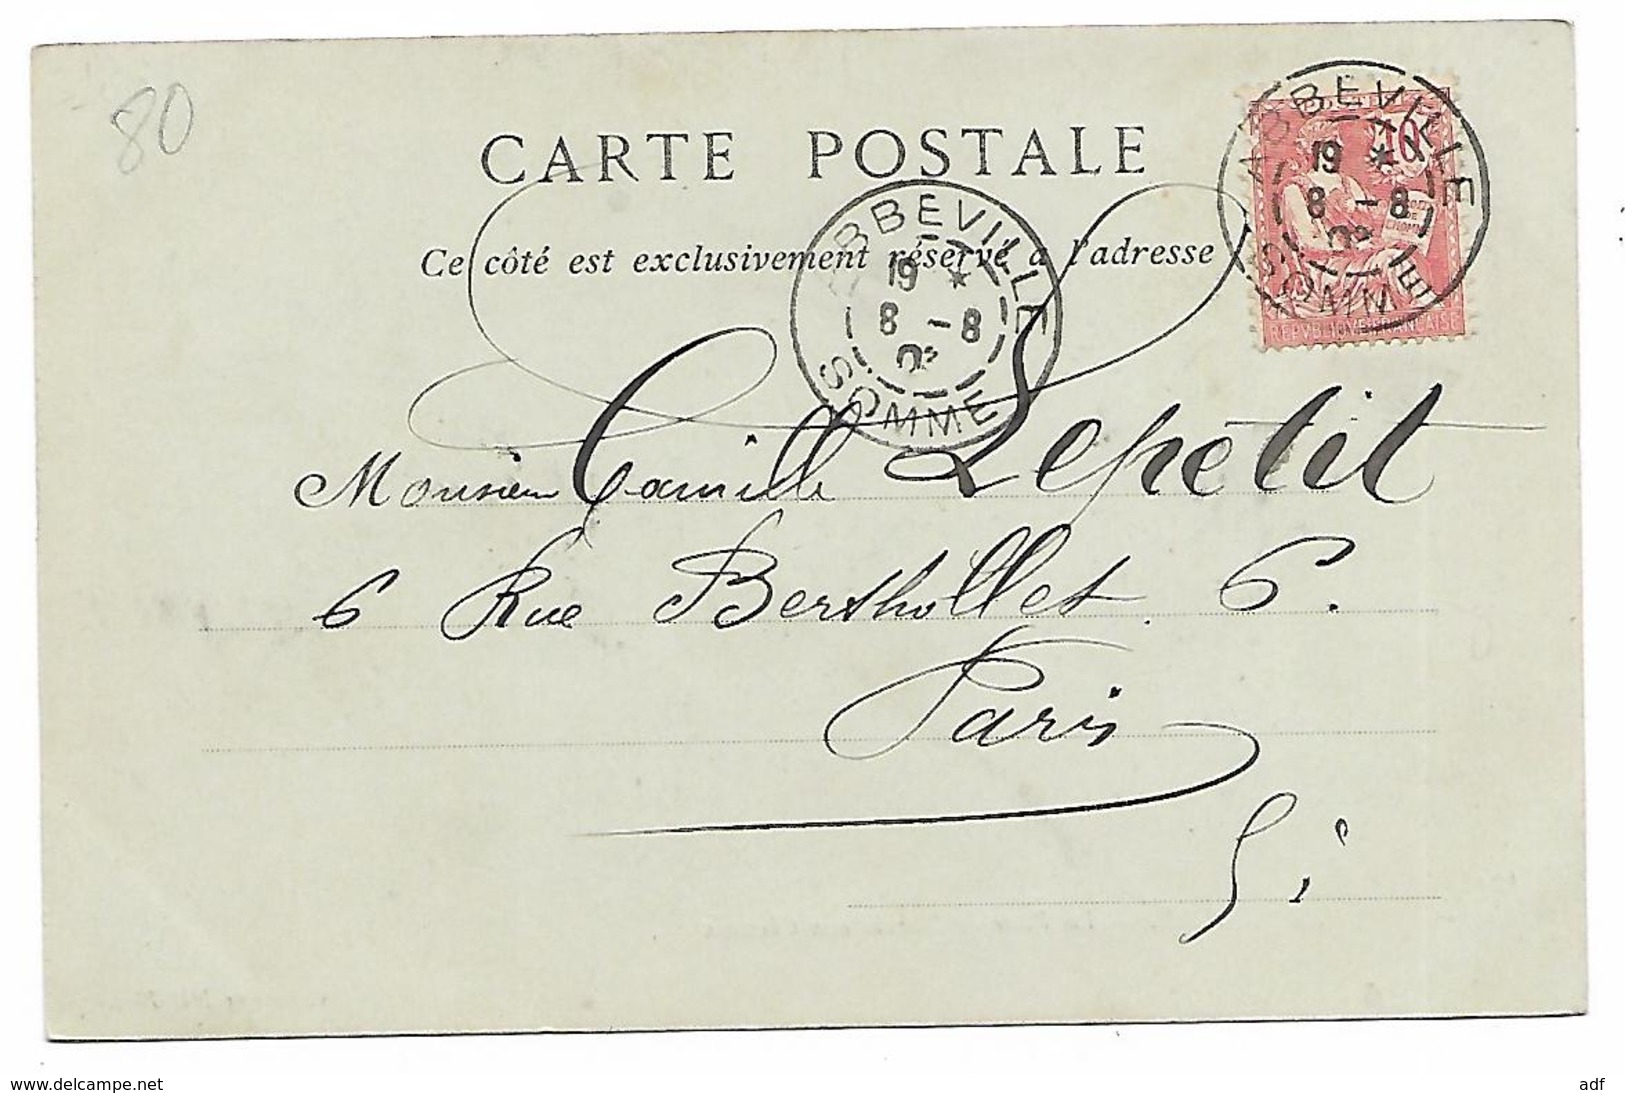 80
CARTE POSTALE
Ce côté est exclusivement réservé a l'adresse
ABBEVILLE
19 *
8 -8
SOMME
10
REPVBLIQVE FRANÇAISE
ABBEVILLE
19 *
8 -8
SOMME
Monsieur Camille Lepetit
6 Rue Berthollet 6.
Paris
www.delcampe.net
adf